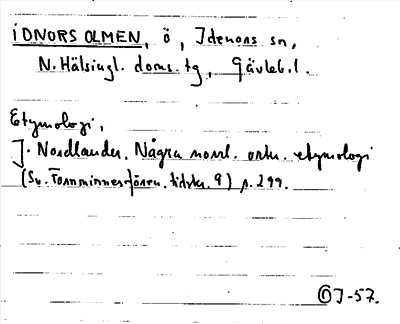 IDNORSOLMEN, ö, Idenors sn,
N. Hälsingl. doms.tg, Gävleb.l.
Etymologi,
J. Nordlander. Några norrl. ortn. etymologi
(Sv. Fornminnesfören. tidskr. 9) p. 299.
ÖJ-57.